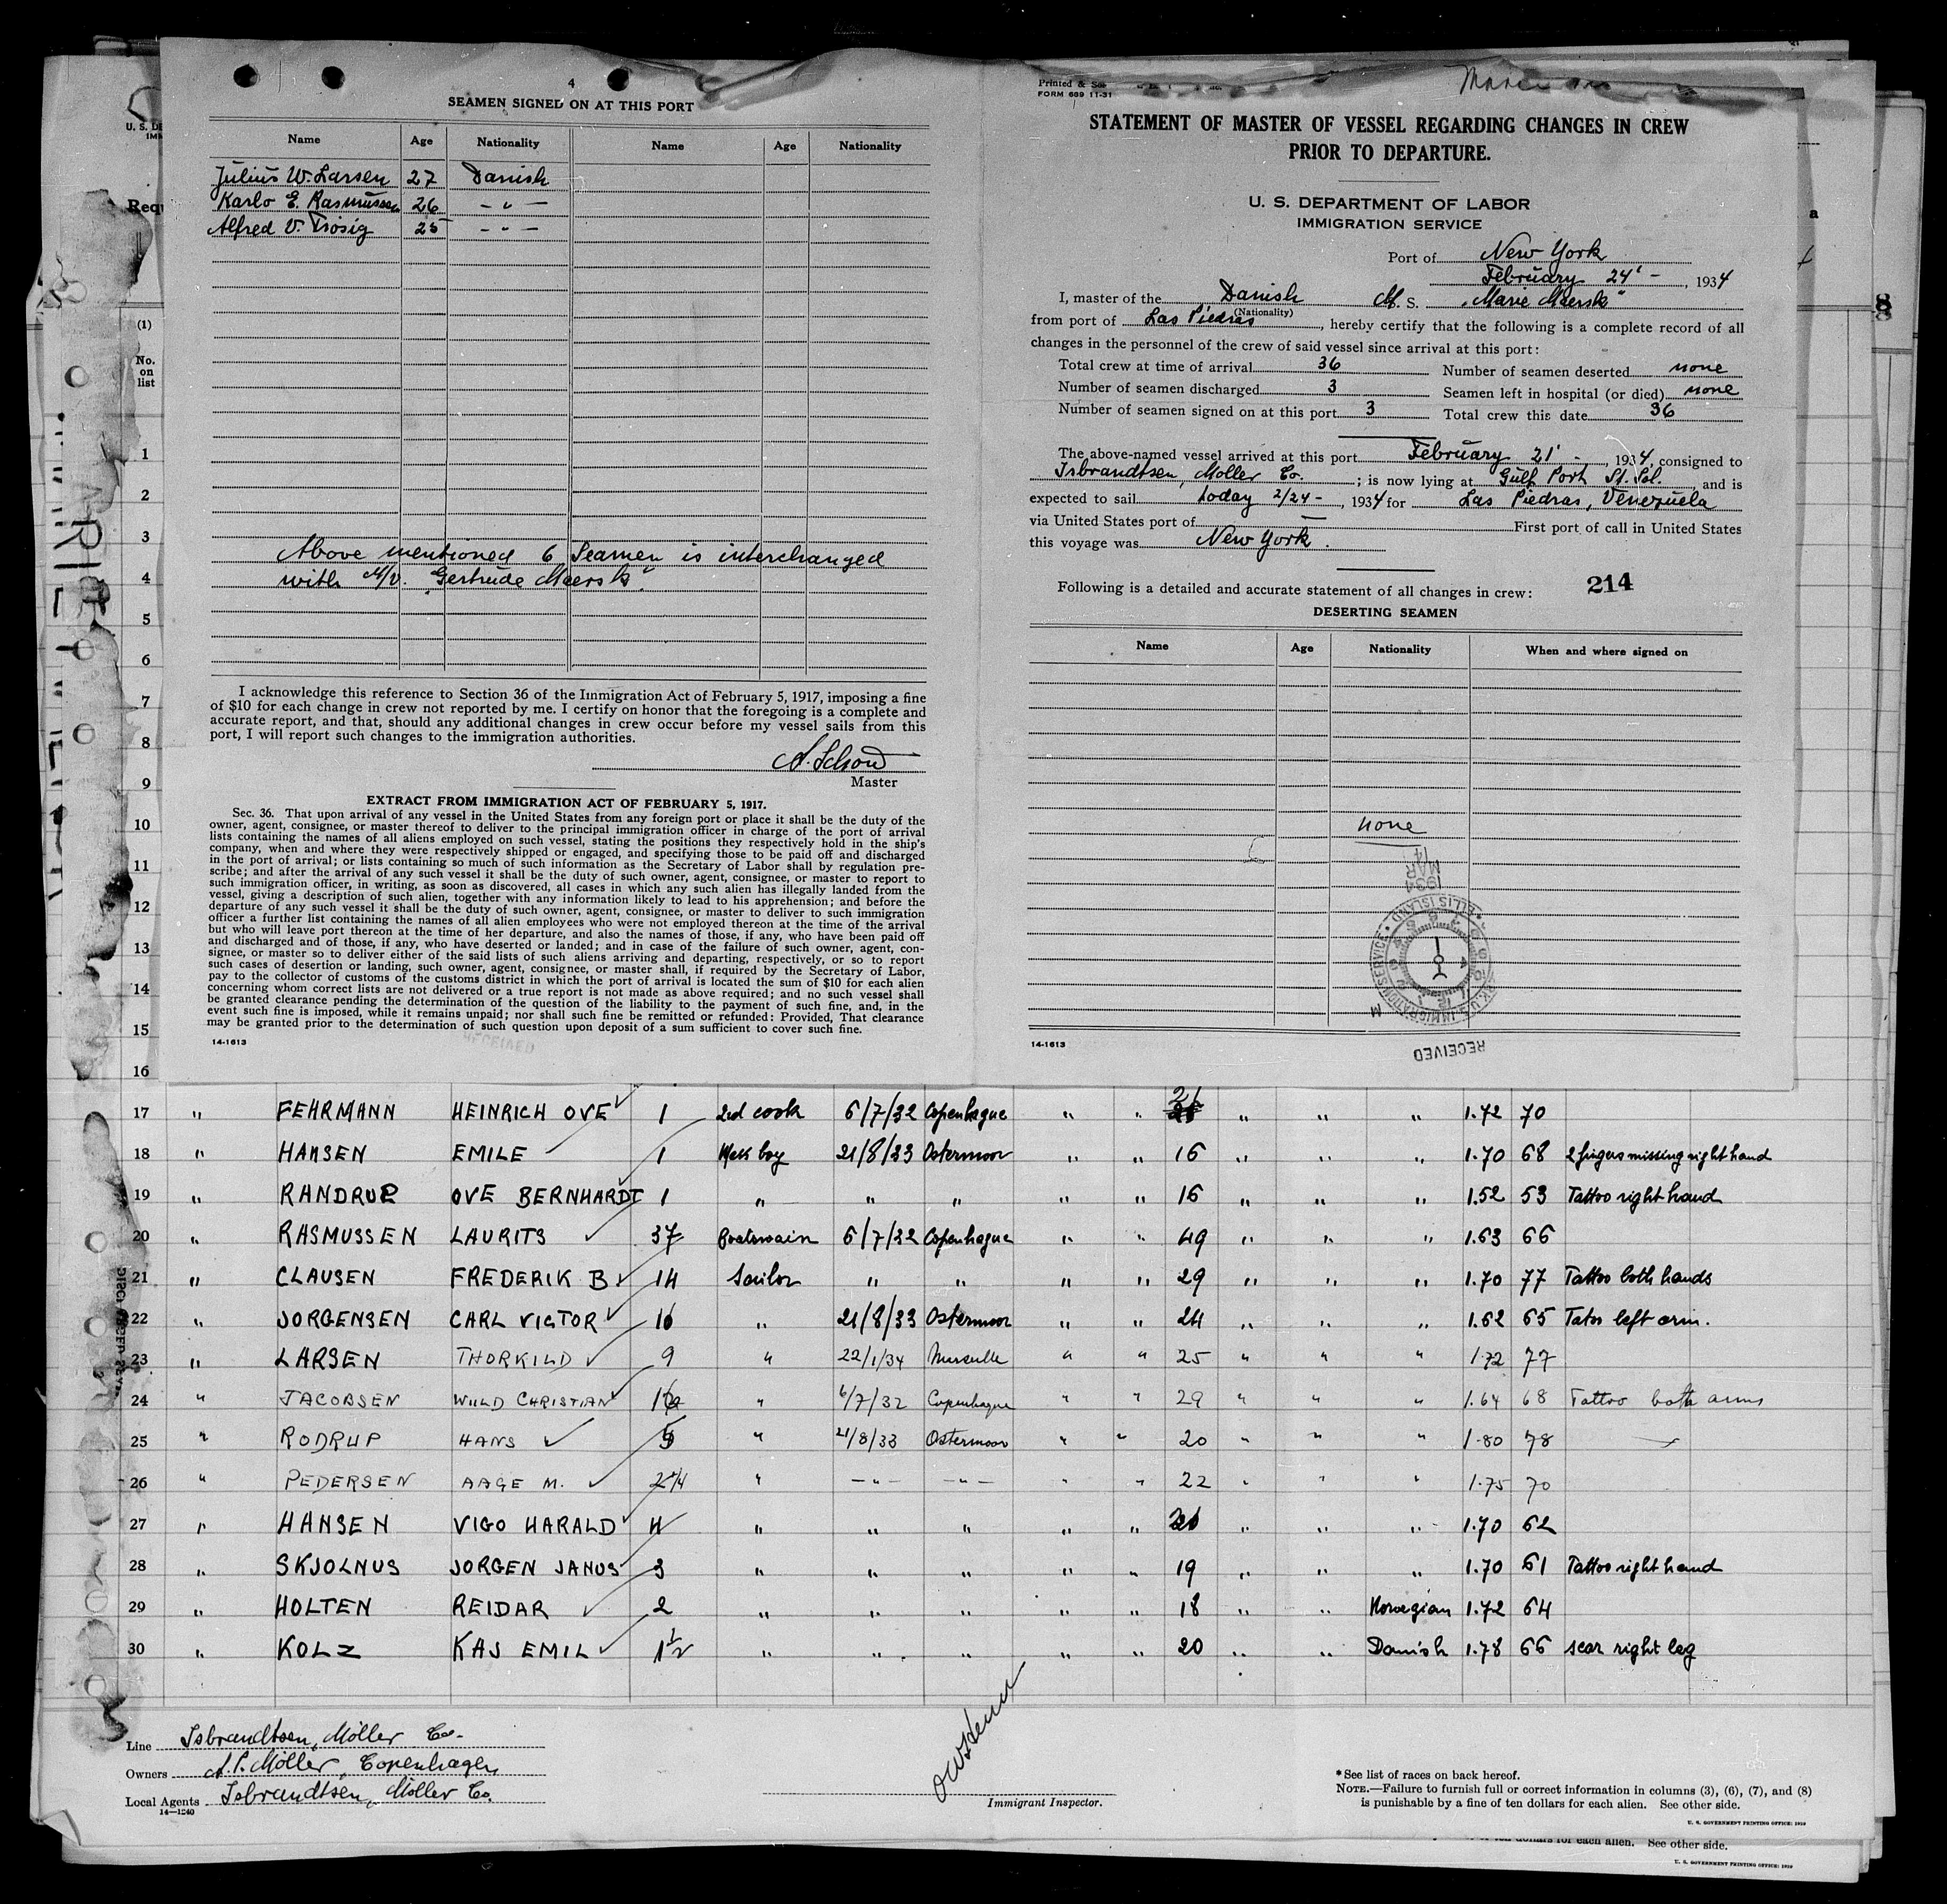 4
SEAMEN SIGNED ON AT THIS PORT
Name Age Nationality Name Age Nationality
Julius W. Larsen 27 Danish
Karlo E. Rasmussen 26 - " -
Alfred V. Trosig 25 - " -
Above mentioned 6 Seamen is interchanged
with M/v. "Gertrude Maersk".
I acknowledge this reference to Section 36 of the Immigration Act of February 5, 1917, imposing a fine
of $10 for each change in crew not reported by me. I certify on honor that the foregoing is a complete and
accurate report, and that, should any additional changes in crew occur before my vessel sails from this
port, I will report such changes to the immigration authorities.
A. Schow
Master
EXTRACT FROM IMMIGRATION ACT OF FEBRUARY 5, 1917.
Sec. 36. That upon arrival of any vessel in the United States from any foreign port or place it shall be the duty of the
owner, agent, consignee, or master thereof to deliver to the principal immigration officer in charge of the port of arrival
lists containing the names of all aliens employed on such vessel, stating the positions they respectively hold in the ship's
company, when and where they were respectively shipped or engaged, and specifying those to be paid off and discharged
in the port of arrival; or lists containing so much of such information as the Secretary of Labor shall by regulation pre-
scribe; and after the arrival of any such vessel it shall be the duty of such owner, agent, consignee, or master to report to
such immigration officer, in writing, as soon as discovered, all cases in which any such alien has illegally landed from the
vessel, giving a description of such alien, together with any information likely to lead to his apprehension; and before the
departure of any such vessel it shall be the duty of such owner, agent, consignee, or master to deliver to such immigration
officer a further list containing the names of all alien employees who were not employed thereon at the time of the arrival
but who will leave port thereon at the time of her departure, and also the names of those, if any, who have been paid off
and discharged and of those, if any, who have deserted or landed; and in case of the failure of such owner, agent, con-
signee, or master so to deliver either of the said lists of such aliens arriving and departing, respectively, or so to report
such cases of desertion or landing, such owner, agent, consignee, or master shall, if required by the Secretary of Labor,
pay to the collector of customs of the customs district in which the port of arrival is located the sum of $10 for each alien
concerning whom correct lists are not delivered or a true report is not made as above required; and no such vessel shall
be granted clearance pending the determination of the question of the liability to the payment of such fine, and, in the
event such fine is imposed, while it remains unpaid; nor shall such fine be remitted or refunded: Provided, That clearance
may be granted prior to the determination of such question upon deposit of a sum sufficient to cover such fine.
14-1613
RECEIVED
Printed &
FORM 689 11-31
STATEMENT OF MASTER OF VESSEL REGARDING CHANGES IN CREW
PRIOR TO DEPARTURE.
U. S. DEPARTMENT OF LABOR
IMMIGRATION SERVICE
Port of New York
February 24' - , 1934
I, master of the Danish M. S. "Marie Maersk"
(Nationality)
from port of Las Piedras, hereby certify that the following is a complete record of all
changes in the personnel of the crew of said vessel since arrival at this port:
Total crew at time of arrival 36 Number of seamen deserted none
Number of seamen discharged 3 Seamen left in hospital (or died) none
Number of seamen signed on at this port 3 Total crew this date 36
The above-named vessel arrived at this port February 21' - , 1934, consigned to
Isbrandtsen, Moller Co. ; is now lying at Gulf Port St. Isl. , and is
expected to sail today 2/24 - , 1934 for Las Piedras, Venezuela
via United States port of — First port of call in United States
this voyage was New York .
Following is a detailed and accurate statement of all changes in crew: 214
DESERTING SEAMEN
Name Age Nationality When and where signed on
none
MAR 1934
ELLIS ISLAND
RECEIVED
14-1613
U. S. DE
(1)
No.
on
list
1
2
3
4
5
6
7
8
9
10
11
12
13
14
15
16
17 " FEHRMANN HEINRICH OVE 1 2nd cook 6/7/32 Copenhague " " 21 " " " 1.72 70
18 " HANSEN EMILE 1 Mess boy 21/8/33 Ostermoor " " 16 " " " 1.70 68 2 fingers missing right hand
19 " RANDRUP OVE BERNHARDT 1 " " " " " 16 " " " 1.52 53 Tattoo right hand
20 " RASMUSSEN LAURITS 37 Boatswain 6/7/32 Copenhague " " 49 " " " 1.63 66
21 " CLAUSEN FREDERIK B 14 Sailor " " " " 29 " " " 1.70 77 Tattoo both hands
22 " JORGENSEN CARL VICTOR 10 " 21/8/33 Ostermoor " " 24 " " " 1.62 65 Tatoo left arm.
23 " LARSEN THORKILD 9 " 22/1/34 Marseille " " 25 " " " 1.72 77
24 " JACOBSEN WILLD CHRISTIAN " 6/7/32 Copenhague " " 29 " " " 1.64 68 Tattoo both arms
25 " RODRUP HANS 5 " 21/8/33 Ostermoor " " 20 " " " 1.80 78 —
26 " PEDERSEN AAGE M. 2 1/4 " - " - - " - " " 22 " " " 1.75 70
27 " HANSEN VIGO HARALD 4 " " " " " " " " 1.70 62
28 " SKJOLNUS JORGEN JANUS 3 " " " " " 19 " " " 1.70 61 Tattoo right hand
29 " HOLTEN REIDAR 2 " " " " " 18 " " Norwegian 1.72 64
30 " KOLZ KAJ EMIL 1 1/2 " " " " " 20 " " Danish 1.78 66 scar right leg
Line Isbrandtsen, Möller Co.
Owners A.P. Möller, Copenhagen
Local Agents Isbrandtsen, Möller Co.
14-1240
Immigrant Inspector.
*See list of races on back hereof.
NOTE.—Failure to furnish full or correct information in columns (3), (6), (7), and (8)
is punishable by a fine of ten dollars for each alien. See other side.
U. S. GOVERNMENT PRINTING OFFICE: 1929
See other side.